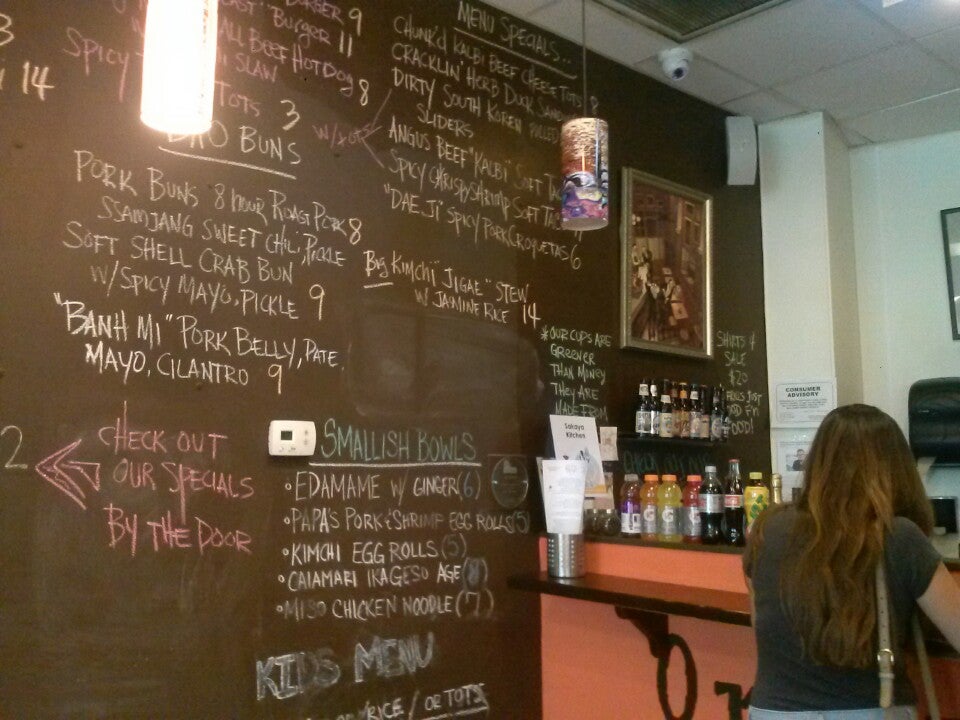 BURGER 9
Burger 11
ALL BEEF HOT DOG 8
SPICY
SLAW
14
TOTS 3
BAO BUNS
PORK BUNS 8 HOUR ROAST PORK 8
SSAMJANG SWEET CHILI, PICKLE
SOFT SHELL CRAB BUN
W/SPICY MAYO, PICKLE 9
"BANH MI" PORK BELLY, PATE,
MAYO, CILANTRO 9
2
CHECK OUT
OUR SPECIALS
BY THE DOOR
MENU SPECIALS...
CHUNK'D KALBI BEEF CHEESE TOTS 8
CRACKLIN' HERB DUCK
DIRTY SOUTH KOREN PULLED
SLIDERS
ANGUS BEEF "KALBI" SOFT
SPICY CHRISPY SHRIMP SOFT
"DAEJI" SPICY PORK CROQUETAS 6
BIG KIMCHI "JIGAE" STEW
W JASMINE RICE 14
SMALLISH BOWLS
•EDAMAME W/ GINGER (6)
•PAPA'S PORK & SHRIMP EGG ROLLS (5)
•KIMCHI EGG ROLLS (5)
•CALAMARI IKAGESO AGE (8)
•MISO CHICKEN NOODLE (7)
KIDS MENU
/RICE / OR TOTS
*OUR CUPS ARE
GREENER
THAN MONEY
THEY ARE
MADE FROM
SHIRTS 4
SALE
$20
Sakaya
Kitchen
CONSUMER
ADVISORY